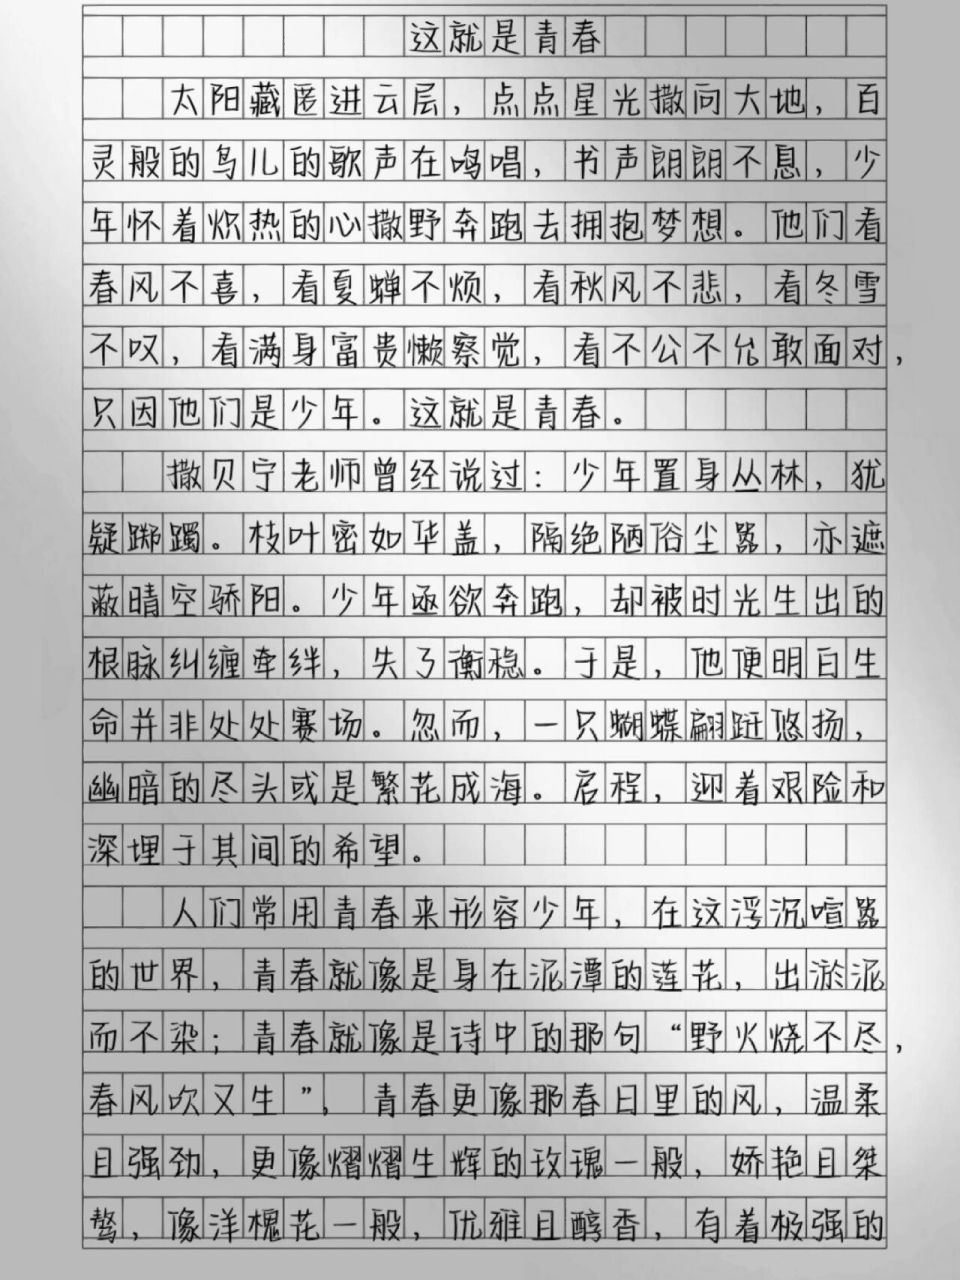 这就是青春
太阳藏匿进云层，点点星光撒向大地，百
灵般的鸟儿的歌声在鸣唱，书声朗朗不息，少
年怀着炽热的心撒野奔跑去拥抱梦想。他们看
春风不喜，看夏蝉不烦，看秋风不悲，看冬雪
不叹，看满身富贵懒察觉，看不公不允敢面对，
只因他们是少年。这就是青春。
撒贝宁老师曾经说过：少年置身丛林，犹
疑踯躅。枝叶密如华盖，隔绝陋俗尘嚣，亦遮
蔽晴空骄阳。少年亟欲奔跑，却被时光生出的
根脉纠缠牵绊，失了衡稳。于是，他便明白生
命并非处处赛场。忽而，一只蝴蝶翩跹悠扬，
幽暗的尽头或是繁花成海。启程，迎着艰险和
深埋于其间的希望。
人们常用青春来形容少年，在这浮沉喧嚣
的世界，青春就像是身在泥潭的莲花，出淤泥
而不染；青春就像是诗中的那句“野火烧不尽，
春风吹又生”，青春更像那春日里的风，温柔
且强劲，更像熠熠生辉的玫瑰一般，娇艳且桀
骜，像洋槐花一般，优雅且醇香，有着极强的